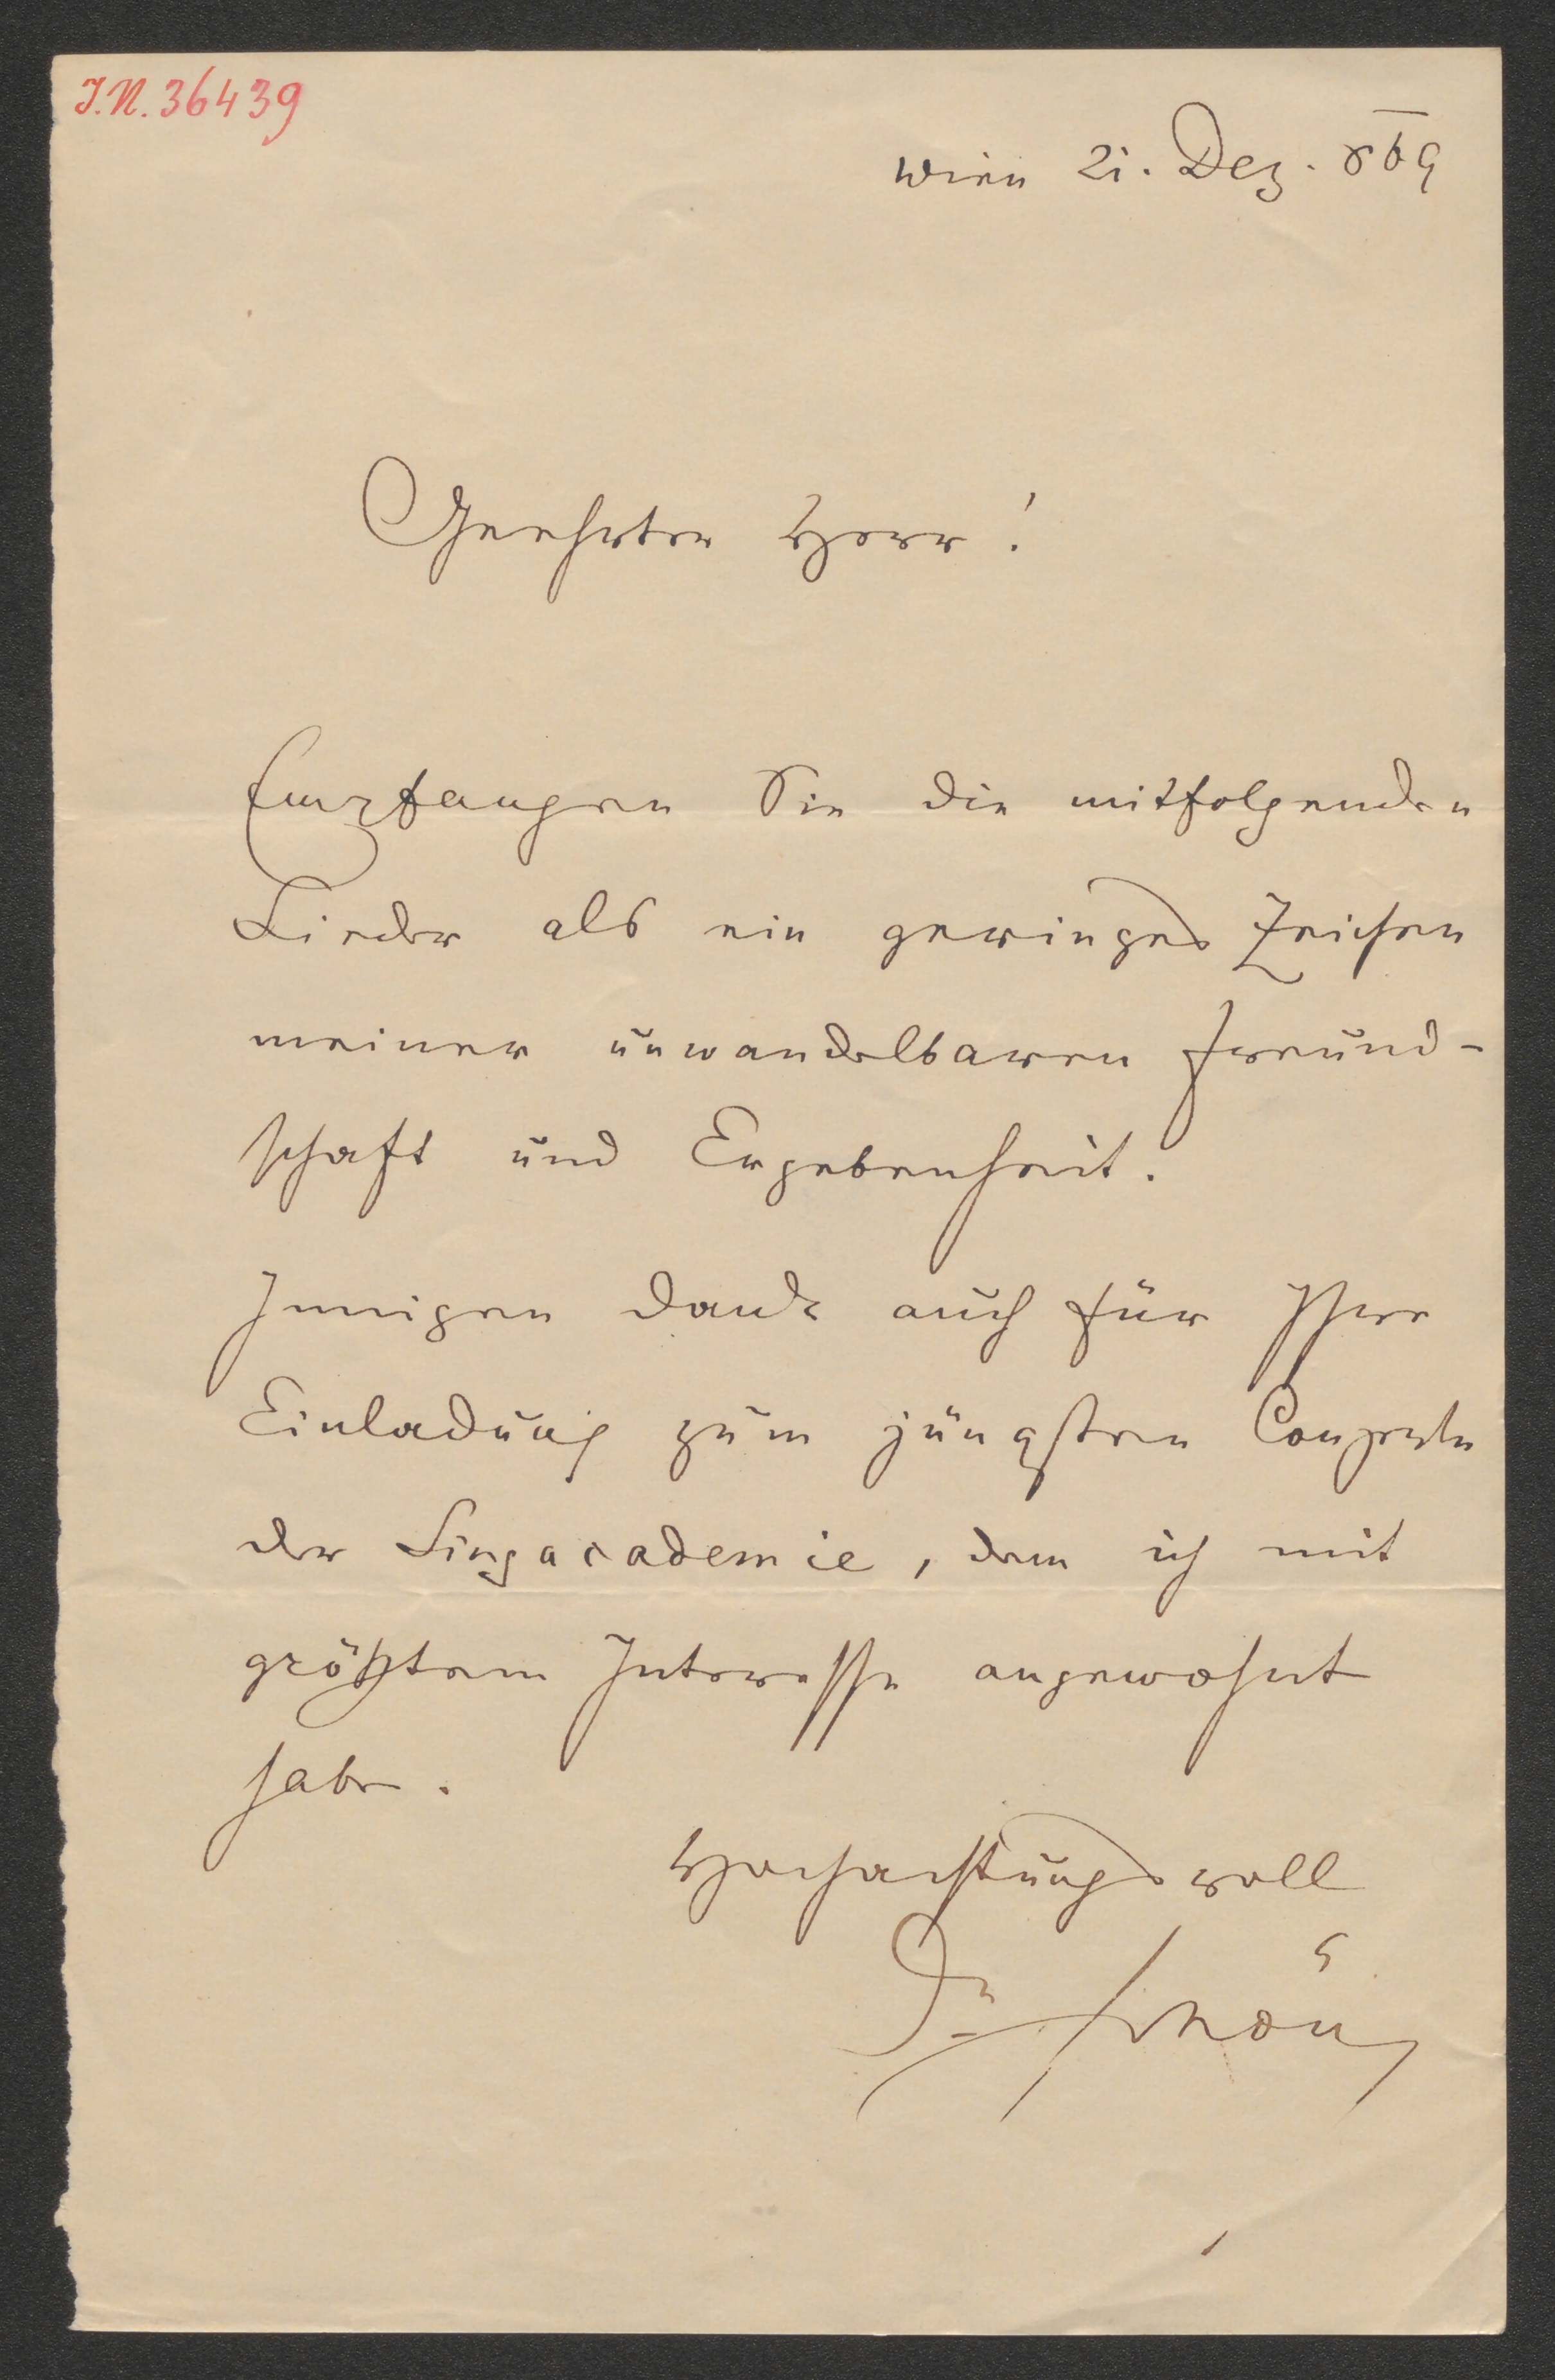 I.N. 36439
Wien 21. Dez. 869
Geehrter Herr!
Empfangen Sie die mitfolgenden
Lieder als ein geringes Zeichen
meiner unwandelbaren Freund-
schaft und Ergebenheit.
Innigen Dank auch für Ihre
Einladung zum jüngsten Conzerte
der Singacademie, dem ich mit
größtem Interesse angewohnt
habe.
Hochachtungsvoll
Dr Schön